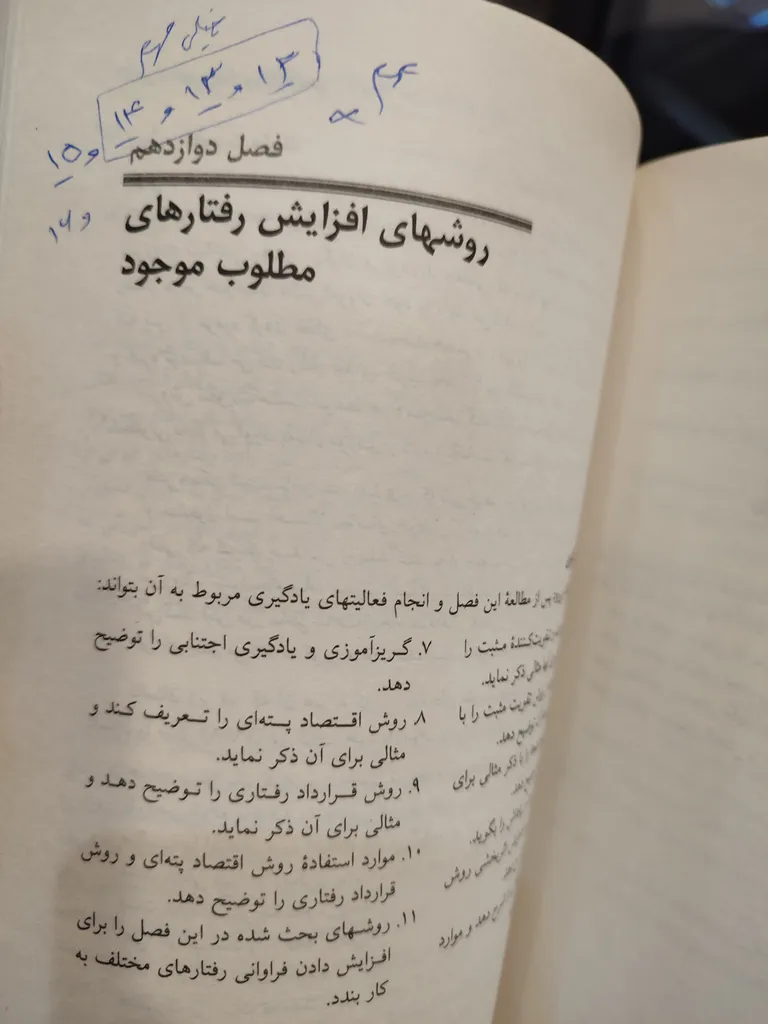 خیلی مهم
۱۲ و ۱۳ و ۱۴ و ۱۵
و ۱۶
فصل دوازدهم
روشهای افزایش رفتارهای
مطلوب موجود
پس از مطالعهٔ این فصل و انجام فعالیتهای یادگیری مربوط به آن بتواند:
مثبت را
مثالی ذکر نماید.
تقویت مثبت را با
توضیح دهد.
را با ذکر مثالی برای
را بگوید.
روش
دهد و موارد
۷. گریزآموزی و یادگیری اجتنابی را توضیح
دهد.
۸. روش اقتصاد پتهای را تعریف کند و
مثالی برای آن ذکر نماید.
۹. روش قرارداد رفتاری را توضیح دهد و
مثالی برای آن ذکر نماید.
۱۰. موارد استفادهٔ روش اقتصاد پتهای و روش
قرارداد رفتاری را توضیح دهد.
۱۱. روشهای بحث شده در این فصل را برای
افزایش دادن فراوانی رفتارهای مختلف به
کار بندد.